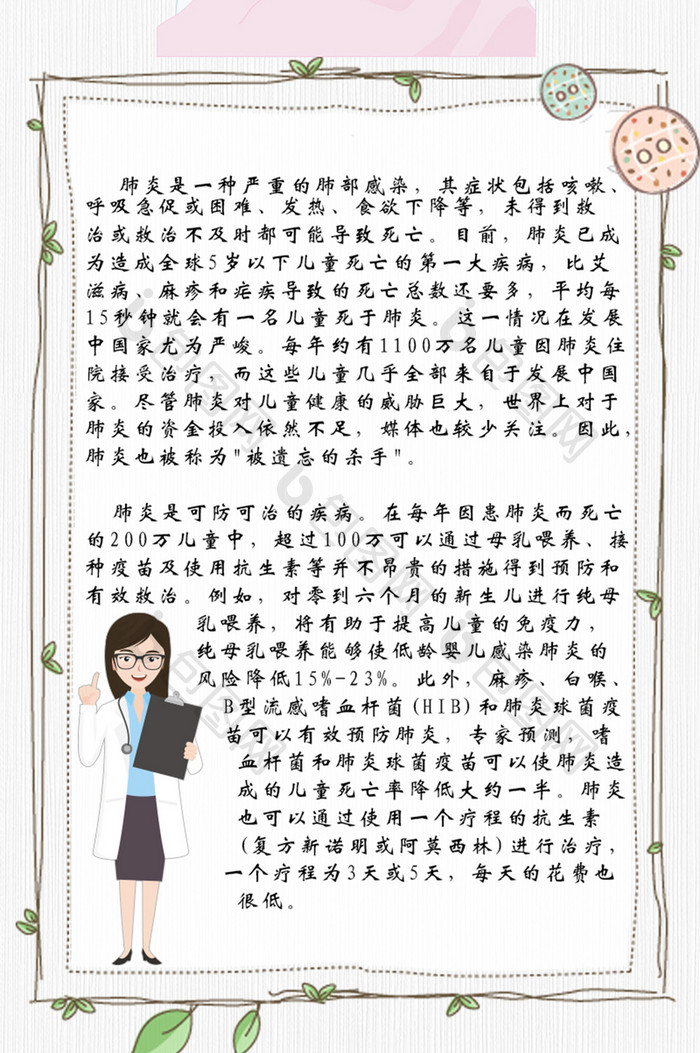 肺炎是一种严重的肺部感染，其症状包括咳嗽、
呼吸急促或困难、发热、食欲下降等，未得到救
治或救治不及时都可能导致死亡。目前，肺炎已成
为造成全球5岁以下儿童死亡的第一大疾病，比艾
滋病、麻疹和疟疾导致的死亡总数还要多，平均每
15秒钟就会有一名儿童死于肺炎。这一情况在发展
中国家尤为严峻。每年约有1100万名儿童因肺炎住
院接受治疗，而这些儿童几乎全部来自于发展中国
家。尽管肺炎对儿童健康的威胁巨大，世界上对于
肺炎的资金投入依然不足，媒体也较少关注。因此，
肺炎也被称为"被遗忘的杀手"。
肺炎是可防可治的疾病。在每年因患肺炎而死亡
的200万儿童中，超过100万可以通过母乳喂养、接
种疫苗及使用抗生素等并不昂贵的措施得到预防和
有效救治。例如，对零到六个月的新生儿进行纯母
乳喂养，将有助于提高儿童的免疫力，
纯母乳喂养能够使低龄婴儿感染肺炎的
风险降低15%-23%。此外，麻疹、白喉、
B型流感嗜血杆菌(HIB)和肺炎球菌疫
苗可以有效预防肺炎，专家预测，嗜
血杆菌和肺炎球菌疫苗可以使肺炎造
成的儿童死亡率降低大约一半。肺炎
也可以通过使用一个疗程的抗生素
(复方新诺明或阿莫西林)进行治疗，
一个疗程为3天或5天，每天的花费也
很低。
包图网
包图网
包图网
包图网
包图网